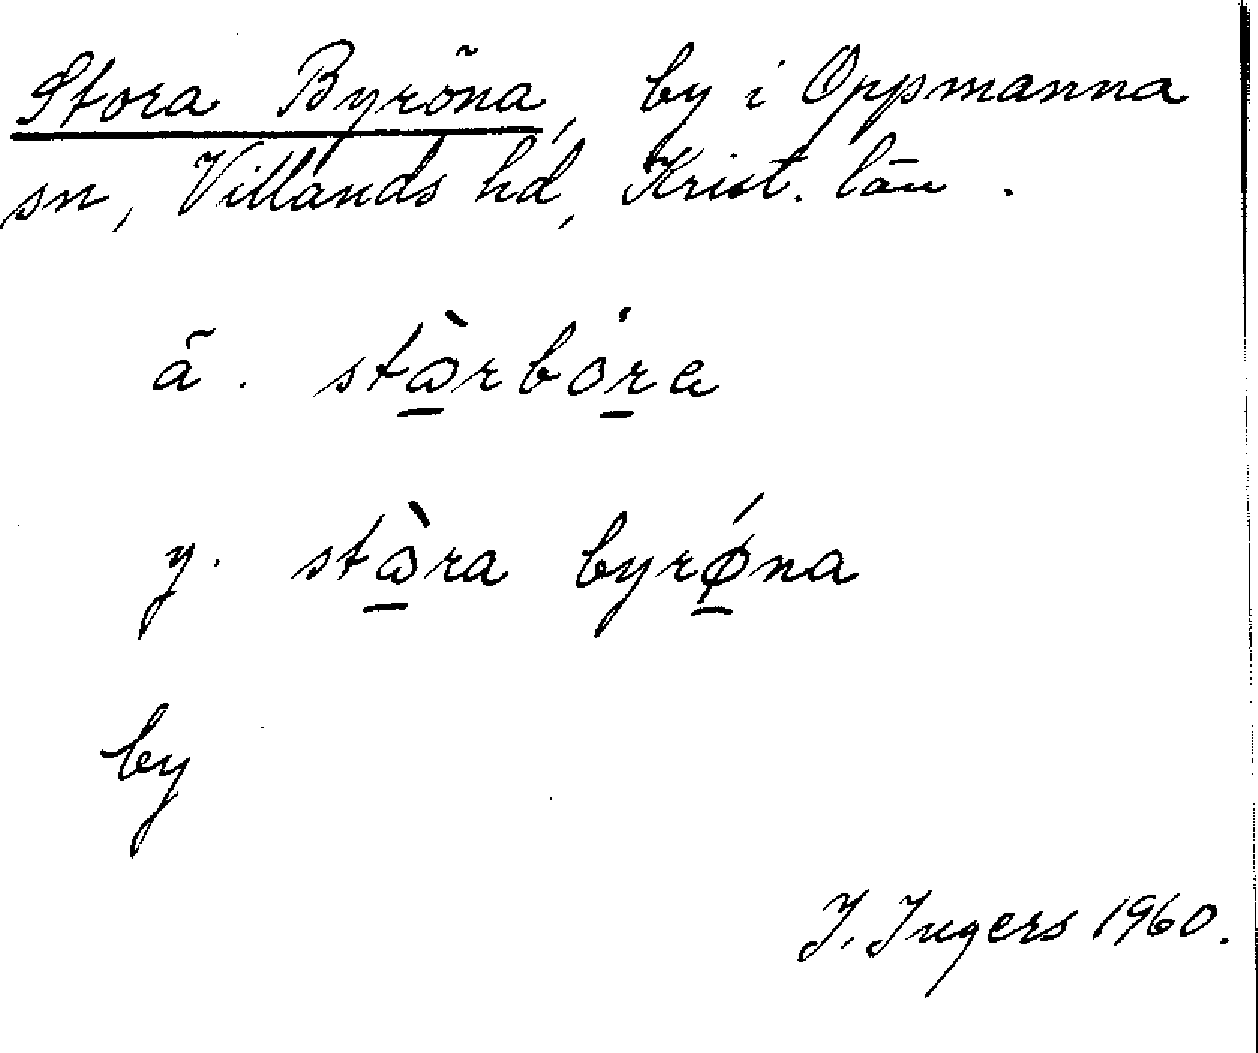 Stora Byröna, by i Oppmanna
sn, Villands hd, Krist. län.
ä. stɷ̀rbȯra
y. stɷ̀ra byrǿna
by
I. Ingers 1960.